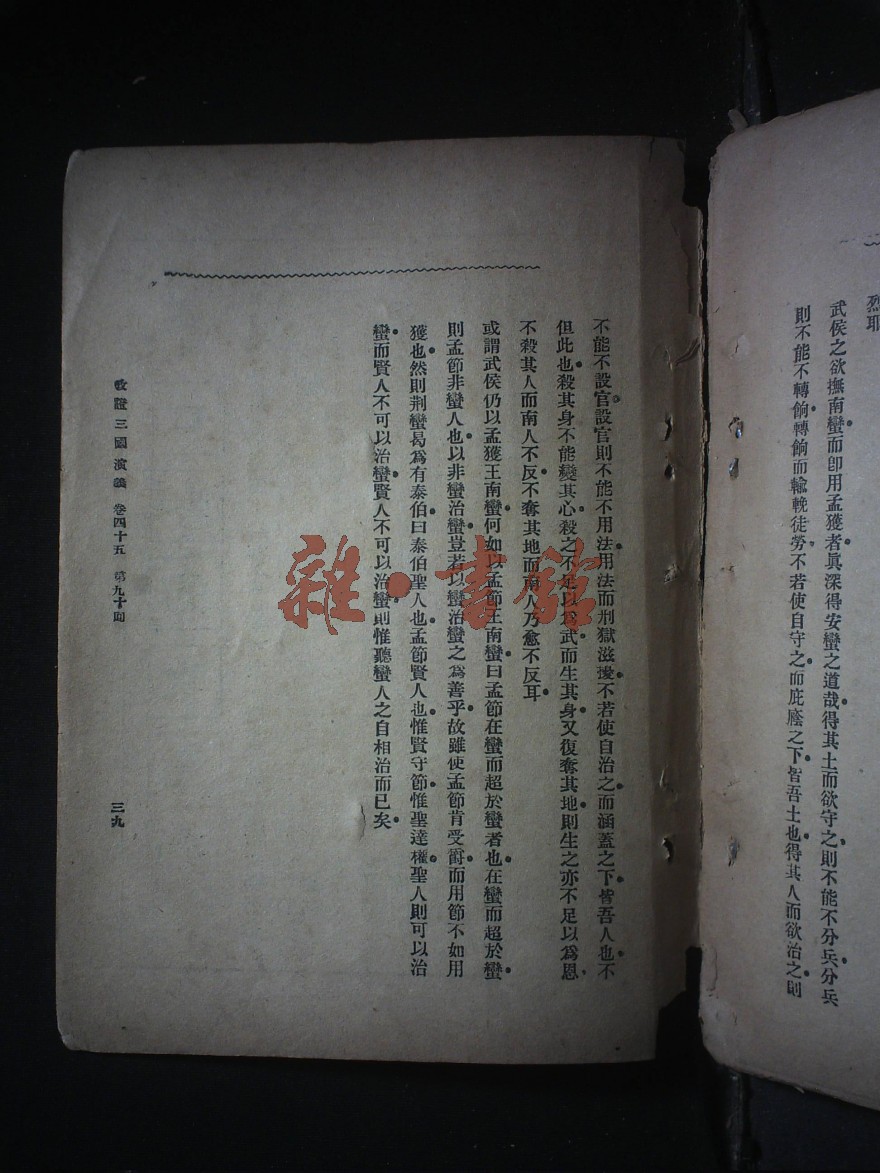 烈耶
武侯之欲撫南蠻而卽用孟獲者眞深得安蠻之道哉得其土而欲守之則不能不分兵分兵
則不能不轉餉轉餉而輸輓徒勞不若使自守之而庇廕之下皆吾土也得其人而欲治之則
不能不設官設官則不能不用法用法而刑獄滋擾不若使自治之而涵蓋之下皆吾人也不
但此也殺其身不能變其心殺之不足以爲武而生其身又復奪其地則生之亦不足以爲恩
不殺其人而南人不反不奪其地而南人乃愈不反耳
或謂武侯仍以孟獲王南蠻何如以孟節王南蠻曰孟節在蠻而超於蠻者也在蠻而超於蠻
則孟節非蠻人也以非蠻治蠻豈若以蠻治蠻之爲善乎故雖使孟節肯受爵而用節不如用
獲也然則荆蠻曷爲有泰伯曰泰伯聖人也孟節賢人也惟賢守節惟聖達權聖人則可以治
蠻而賢人不可以治蠻賢人不可以治蠻則惟聽蠻人之自相治而已矣
證三國演義 卷四十五 第九十回
三九
雜·書館